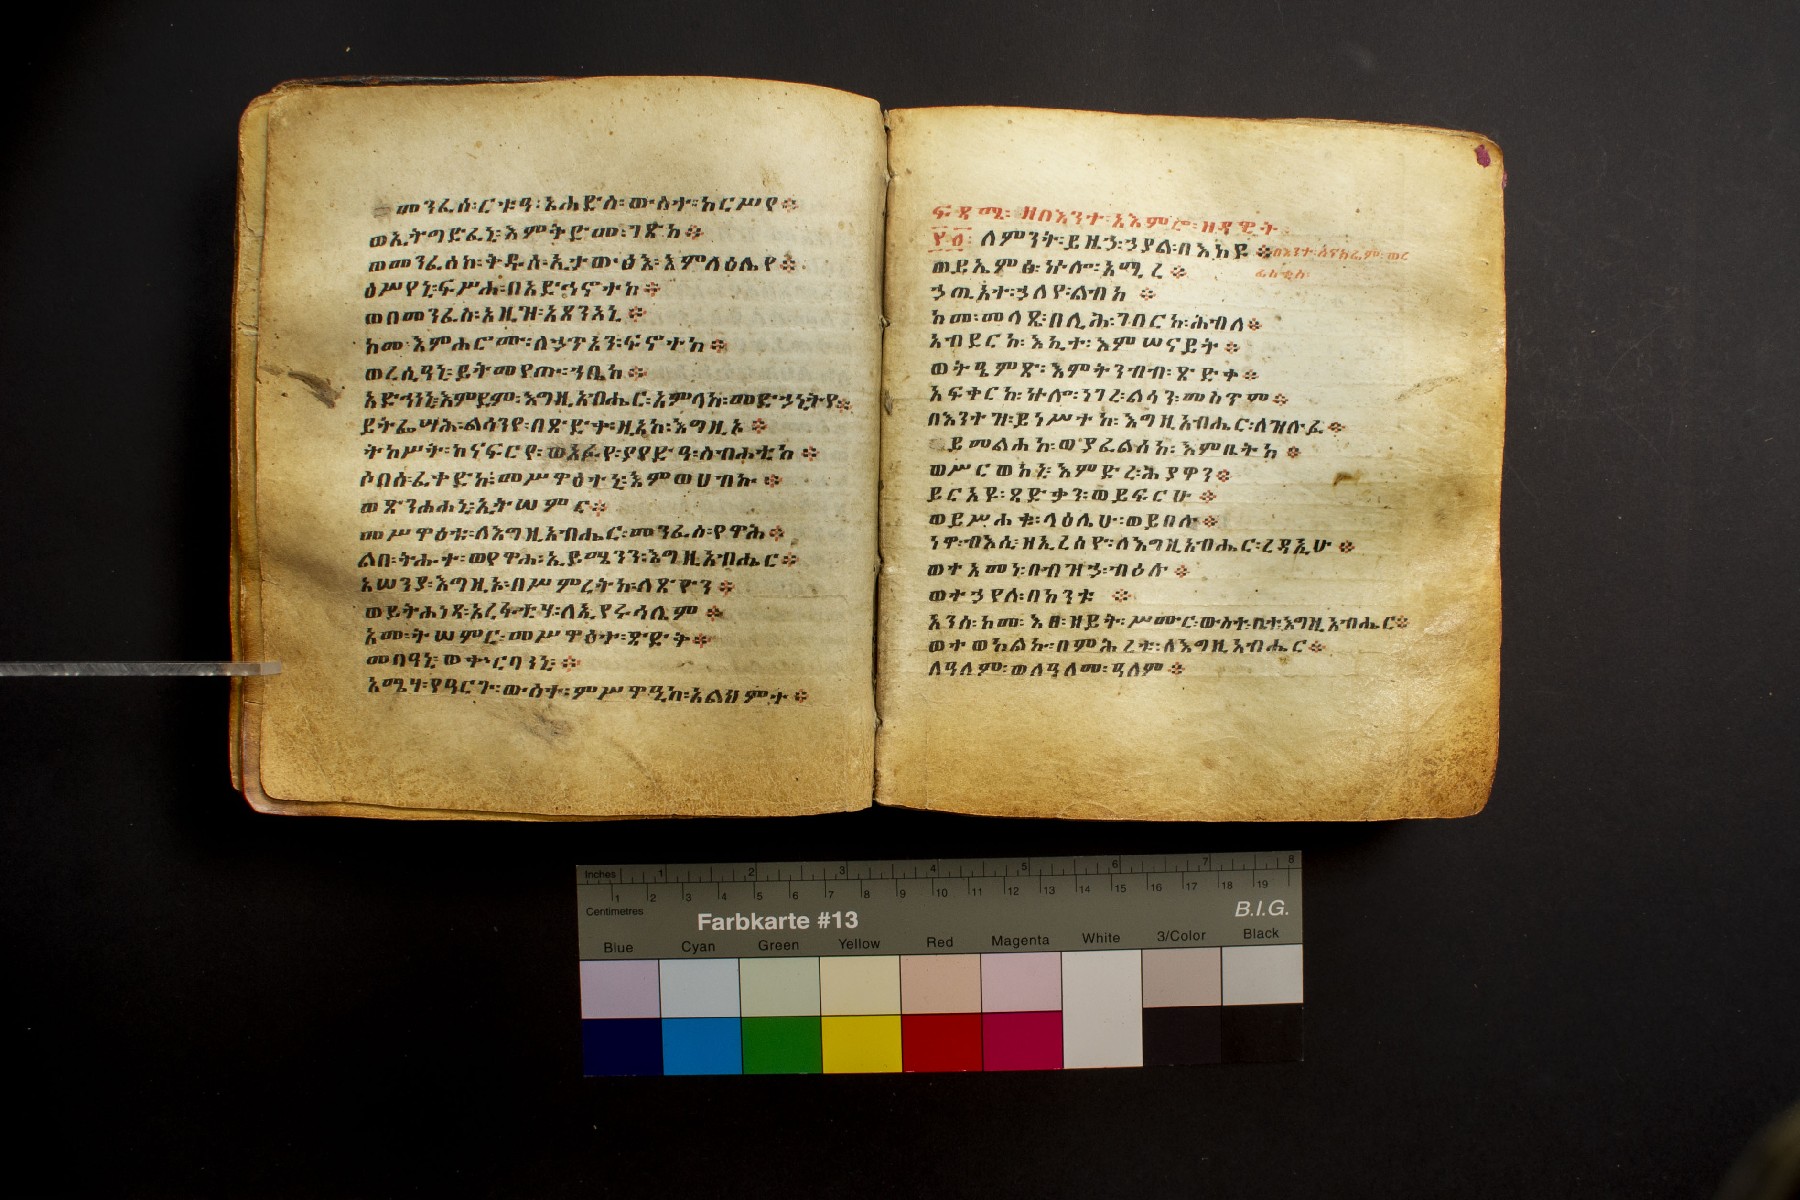 መንፈሰ፡ርቱዓ፡ሐድስ፡ውስተ፡ከርሥየ፨
ወኢትግድፈኒ፡እምቅድመ፡ገጽከ፨
ወመንፈሰከ፡ቅዱሰ፡ኢታውፅእ፡እምላዕሌየ፨
ዕሥየኒ፡ፍሥሐ፡በአድኅኖትከ፨
ወበመንፈስ፡አዚዝ፡አጽንአኒ፨
ከመ፡እምሐሮሙ፡ለኃጥአን፡ፍኖተከ፨
ወረሲዓኒ፡ይትመየጡ፡ኀቤከ፨
አድኅነኒ፡እምደም፡እግዚአብሔር፡አምላከ፡መድኃኒትየ፨
ይትፌሣሕ፡ልሳንየ፡በጽድቀ፡ዚአከ፡እግዚኦ
ትከሥት፡ከናፍርየ፡ወአፉየ፡ያየድዓ፡ስብሐቲከ፨
ሶበሰ፡ፈቀድከ፡መሥዋዕተኒ፡እምወሀብኩ፨
ወጽንሐሐኒ፡ኢትሠምር፨
መሥዋዕቱ፡ለእግዚአብሔር፡መንፈስ፡የዋሕ፨
ልበ፡ትሑተ፡ወየዋሐ፡ኢይሜንን፡እግዚአብሔር፨
አሠንያ፡እግዚኦ፡በሥምረትከ፡ለጽዮን፨
ወይትሐነጻ፡አረፋቲሃ፡ለኢየሩሳሌም፨
አመ፡ትሠምር፡መሥዋዕተ፡ጽድቅ፨
መባዓኒ፡ወቍርባንኒ፨
አሜሃ፡የዓርጉ፡ውስተ፡ምሥዋዒከ፡አልህምተ፨
ፍጻሜ፡ ዘበእንተ፡አእምሮ፡ዘዳዊት፡
፶፩፡ ለምንት፡ይዜኃ፡ኃያል፡በእከዩ፨
ወይኤምፅ፡ኵሎ፡አሚረ፨
ኃጢአተ፡ኃለየ፡ልብከ፨
ከመ፡መላጼ፡በሊሕ፡ገበርከ፡ሕብለ፨
አብደርከ፡እኪተ፡እምሠናይት፨
ወትዔምጽ፡እምትንብብ፡ጽድቀ፨
አፍቀርከ፡ኵሎ፡ነገረ፡ልሳን፡መስጥም፨
በእንተዝ፡ይነሥተከ፡እግዚአብሔር፡ለዝሉፉ፨
ይመልሐከ፡ወያፈልሰከ፡እምቤትከ፨
ወሥርወከኒ፡እምድረ፡ሕያዋን፨
ይርአዩ፡ጻድቃን፡ወይፍርሁ፨
ወይሥሐቁ፡ላዕሌሁ፡ወይበሉ፨
ነዋ፡ብእሲ፡ዘኢረሰዮ፡ለእግዚአብሔር፡ረዳኢሁ፨
ወተአመነ፡በብዝኃ፡ብዕሉ፨
ወተኃየለ፡በከንቱ፨
አንሰ፡ከመ፡ዕፀ፡ዘይት፡ሥሙር፡ውስተ፡ቤተ፡እግዚአብሔር፨
ወተወከልኩ፡በምሕረቱ፡ለእግዚአብሔር፨
ለዓለም፡ወለዓለመ፡ዓለም፨
Inches 1 2 3 4 5 6 7 8
1 2 3 4 5 6 7 8 9 10 11 12 13 14 15 16 17 18 19
Centimetres
Farbkarte #13
B.I.G.
Blue Cyan Green Yellow Red Magenta White 3/Color Black